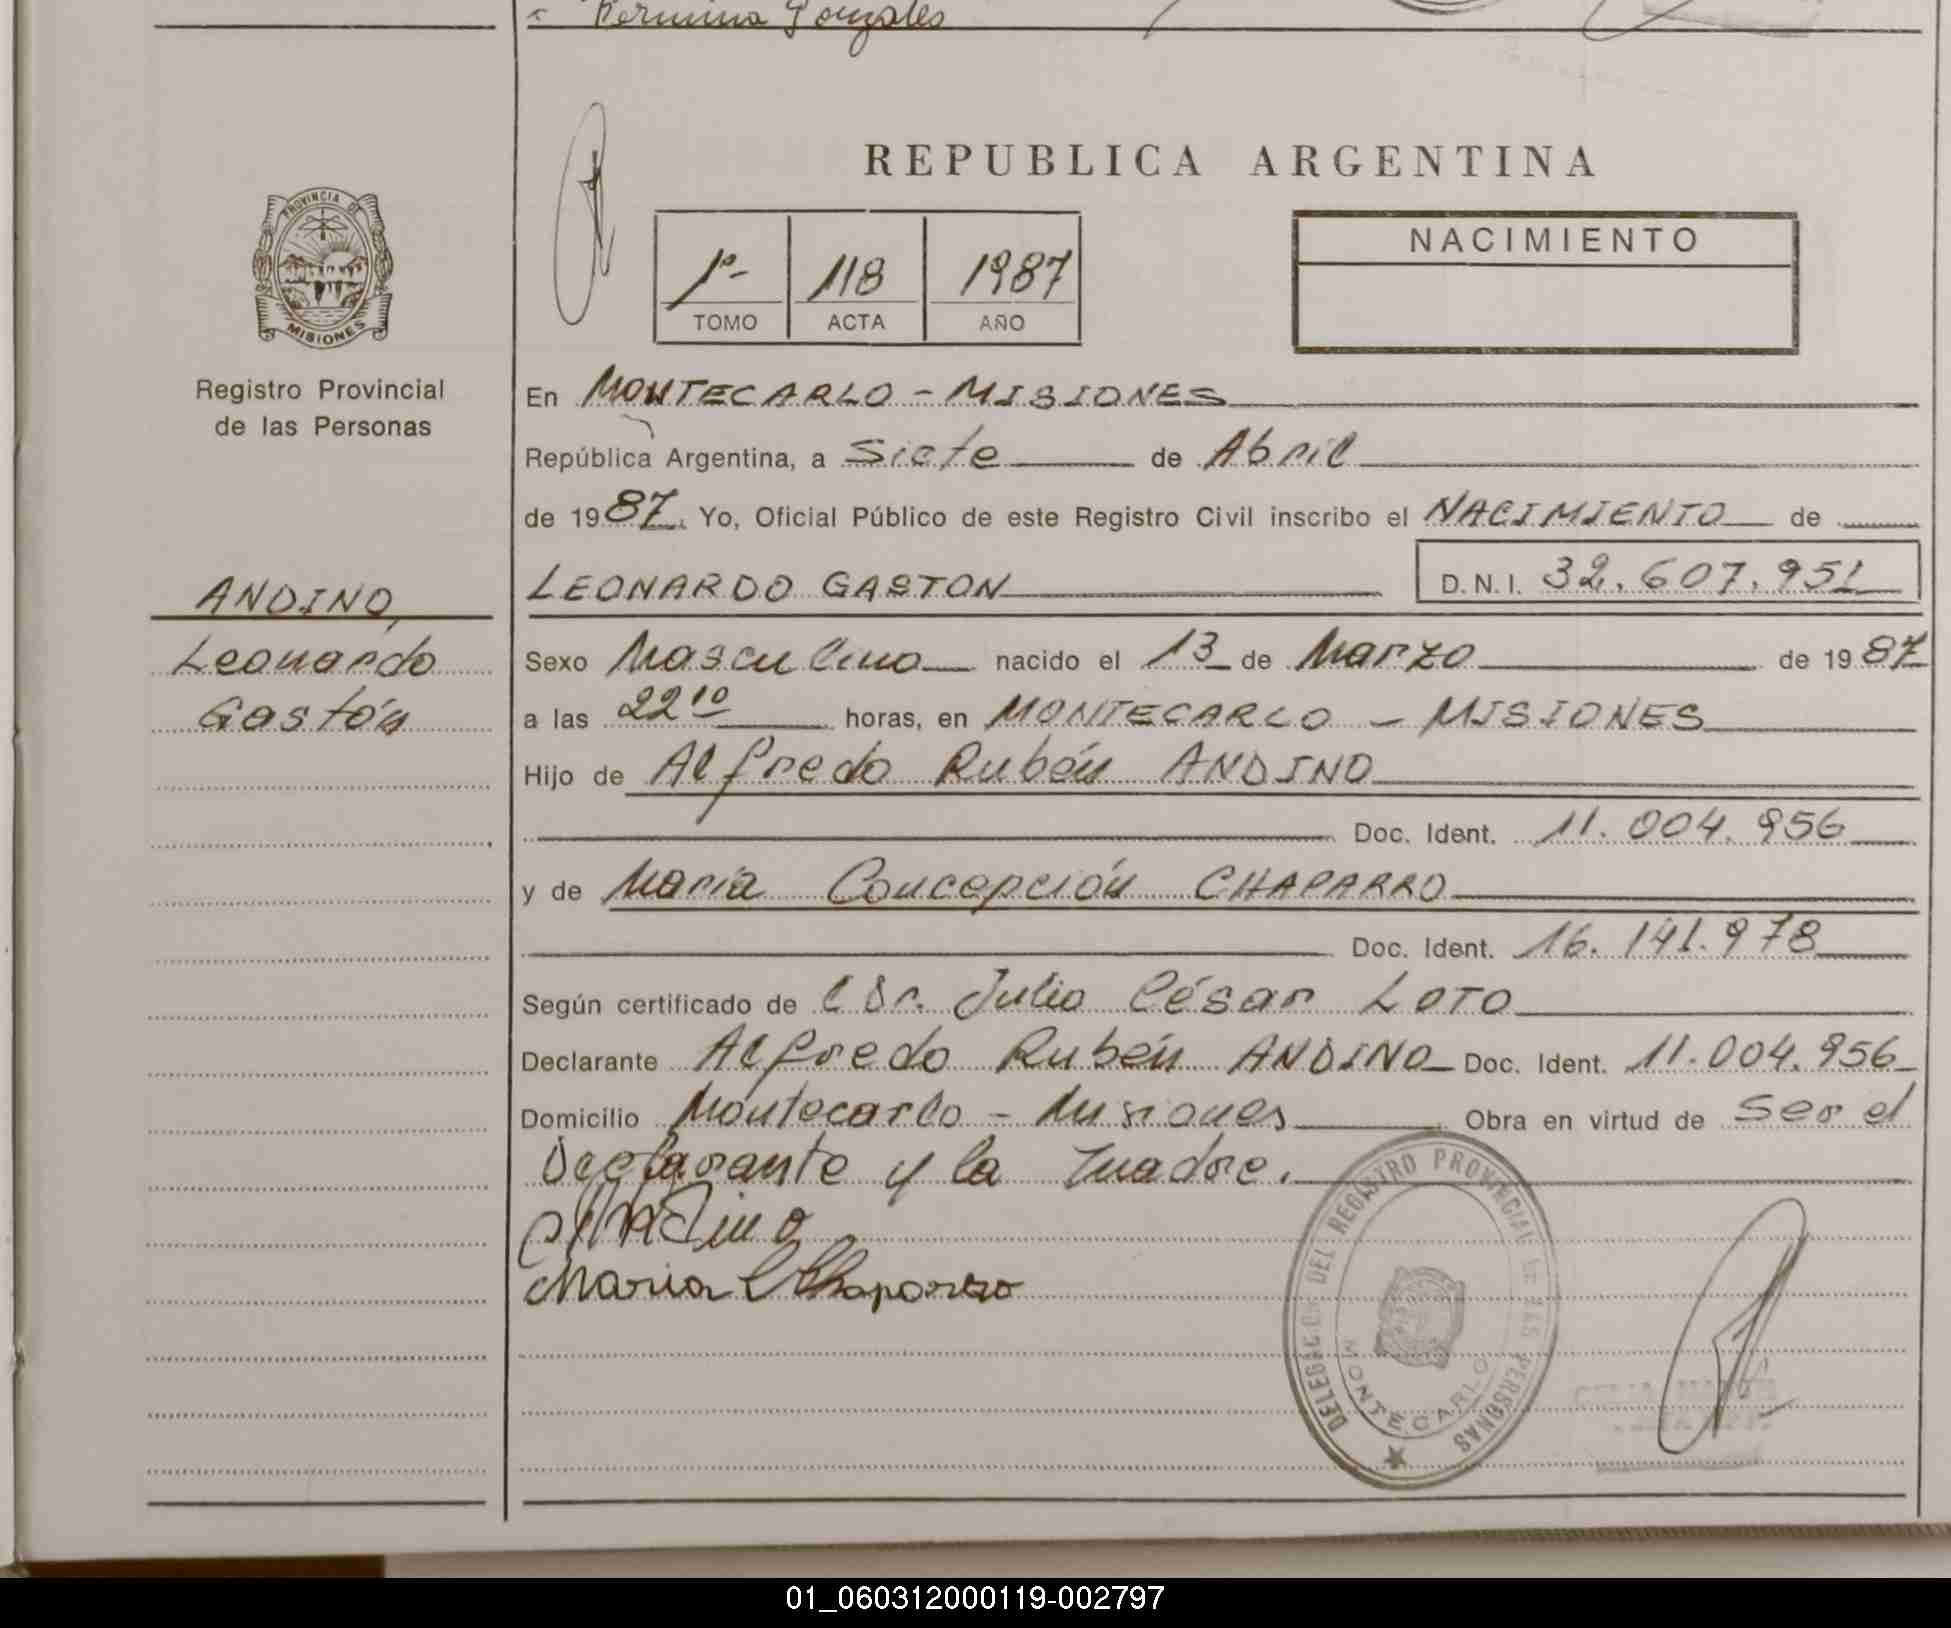 Fermina Gonzales
REPUBLICA ARGENTINA
PROVINCIA DE
MISIONES
Registro Provincial
de las Personas
1º- 118 1987
TOMO ACTA AÑO
NACIMIENTO
En MONTECARLO - MISIONES
República Argentina, a Siete de Abril
de 1987. Yo, Oficial Público de este Registro Civil inscribo el NACIMIENTO de
ANDINO,
Leonardo
Gastón
LEONARDO GASTON D.N.I. 32.607.951
Sexo Masculino nacido el 13 de Marzo de 1987
a las 22 10 horas, en MONTECARLO - MISIONES
Hijo de Alfredo Rubén ANDINO
Doc. Ident. 11.004.956
y de María Concepción CHAPARRO
Doc. Ident. 16.141.978
Según certificado de l Dr. Julio César LOTO
Declarante Alfredo Rubén ANDINO Doc. Ident. 11.004.956
Domicilio Montecarlo - Misiones Obra en virtud de Ser el
Declarante y la madre.
Andino
Maria C Chaparro
DELEGACION DEL REGISTRO PROVINCIAL DE LAS PERSONAS
MONTECARLO
01_060312000119-002797